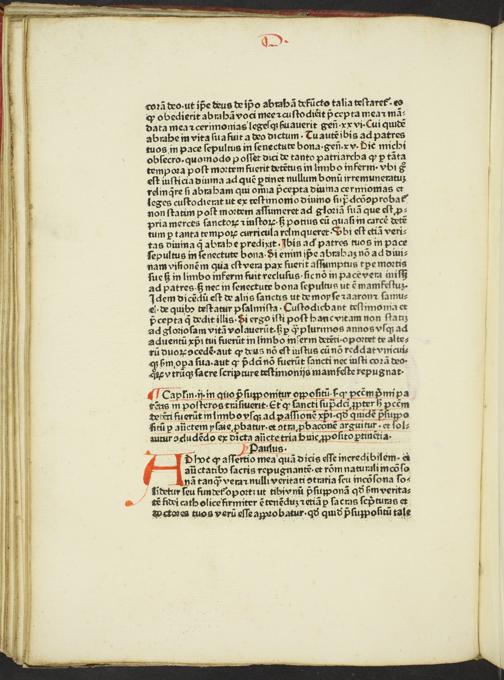 D.
corā deo. ut ip̄e deus de ip̄o abrahā defūcto talia testaret̄. eo
ꝙ obedierit abrahā voci mee ⁊ custodierit p̄cepta mea ⁊ mā-
data mea ⁊ cerimonias leges seruauerit geñ. xxvi. Cui quidē
abrahe in vita sua fuit a deo dictum. Tu autē ibis ad patres
tuos in pace sepultus in senectute bona. geñ. xv. Dic michi
obsecro. quomodo posset dici de tanto patriarcha ꝙ ꝑ tāta
tempora post mortem fuerit detētus in limbo inferni. vbi
est iusticia diuina ad quē ꝑtinet nullum bonū irremuneratū
relinq̄re si abraham qui om̄ia p̄cepta diuina cerimonias et
leges custodierat ut ex testimonio diuino
non statim post mortem assumeret̄ ad gloriā suā que est ꝓ-
pria merces sanctoꝝ ⁊ iustoꝝ. sꝫ potius eū quasi in carcē detē
tum ꝑ tanta tempoꝝ curricula relinqueret. Vbi est etiā veri-
tas diuina q̄ abrahe predixit. Ibis ad patres tuos in pace
sepultus in senectute bona. Si enim ip̄e abrahā nō ad diui-
nam visionē in qua est vera pax fuerit assumptus tp̄e mortis
sue sꝫ in limbo inferni fuit reclusus. sic nō in pace vera
ad patres. sꝫ nec in senectute bona sepultus ut ē manifestū.
Idem dicēdū est de aliis sanctis ut de moyse ⁊ aaron ⁊ samu-
ele. de quibꝫ testatur psalmista. Custodiebant testimonia et
p̄cepta q̄ dedit illis. Si ergo isti post hanc vitam non statī
ad gloriosam vitā volauerūt. sꝫ plurimos annos vsqꝫ ad
aduentū xp̄i tui fuerūt in limbo inferni detēti. oportet te alte-
rū duoꝝ ⁊cedē. aut ꝙ deus nō est iustus cū nō reddat vnicui-
qꝫ sm̄ opa sua. aut ꝙ p̄dicti nō fuerūt sancti nec iusti corā deo.
quoꝝ vtrūqꝫ sacre scripture testimoniis manifeste repugnat.
Capl̄m. ii. in quo p̄supponitur oppositū. s. ꝙ pctm̄ primi pa
rētis in posteros trāsiuerit. Et ꝙ sancti sup̄dicti ꝓpter hꝰ pctm̄
detēti fuerūt in limbo vsqꝫ ad passionē xp̄i. qd̄ quidē p̄suppo
situ ꝑ auctem ysaie ꝓbatur. et ⁊tra ꝓbacionē arguitur. et sol-
uitur ⁊cludēdo ex dicta aucte tria huic ꝓposito ptinētia.
Paulus.
Adhoc ꝙ assertio mea quā dicis esse incredibilem. et
auctātibꝰ sacris repugnantē. et rōni naturali incōso
nā tanqꝫ vera ⁊ nulli veritati ⁊traria seu incōsona so-
lidetur seu fundet̄ oportꝫ ut tibi vnū p̄supponā qd̄ sm̄ verita-
tē fidei catholice firmiter ē tenēdū ⁊ etiā ꝑ sacras scp̄turas et
doctores tuos verū esse approbatur. qd̄ quidē p̄suppositū tale